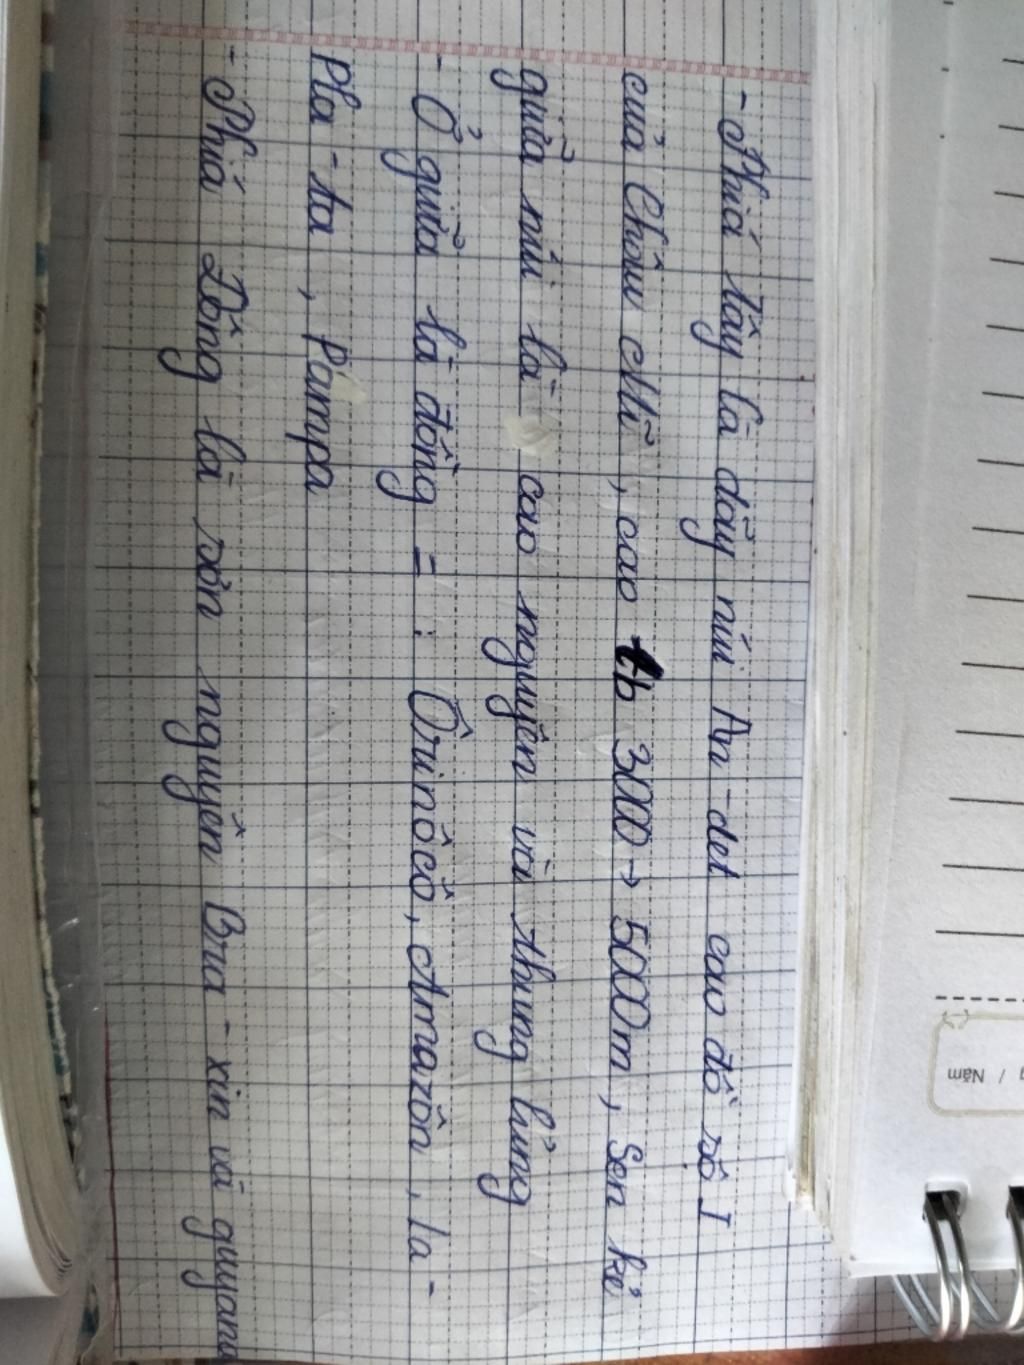 - Phía tây là dãy núi An-det cao đồ sộ I
của Châu Mĩ, cao tb 3000 → 5000m, Sen kẻ
giữa núi là cao nguyên và thung lũng
- Ở giữa là đồng = : Ôrinôcô, Amazôn, la -
Pla - ta, Pampa
- Phía Đông là sơn nguyên Bra - xin và guyana
/ Năm